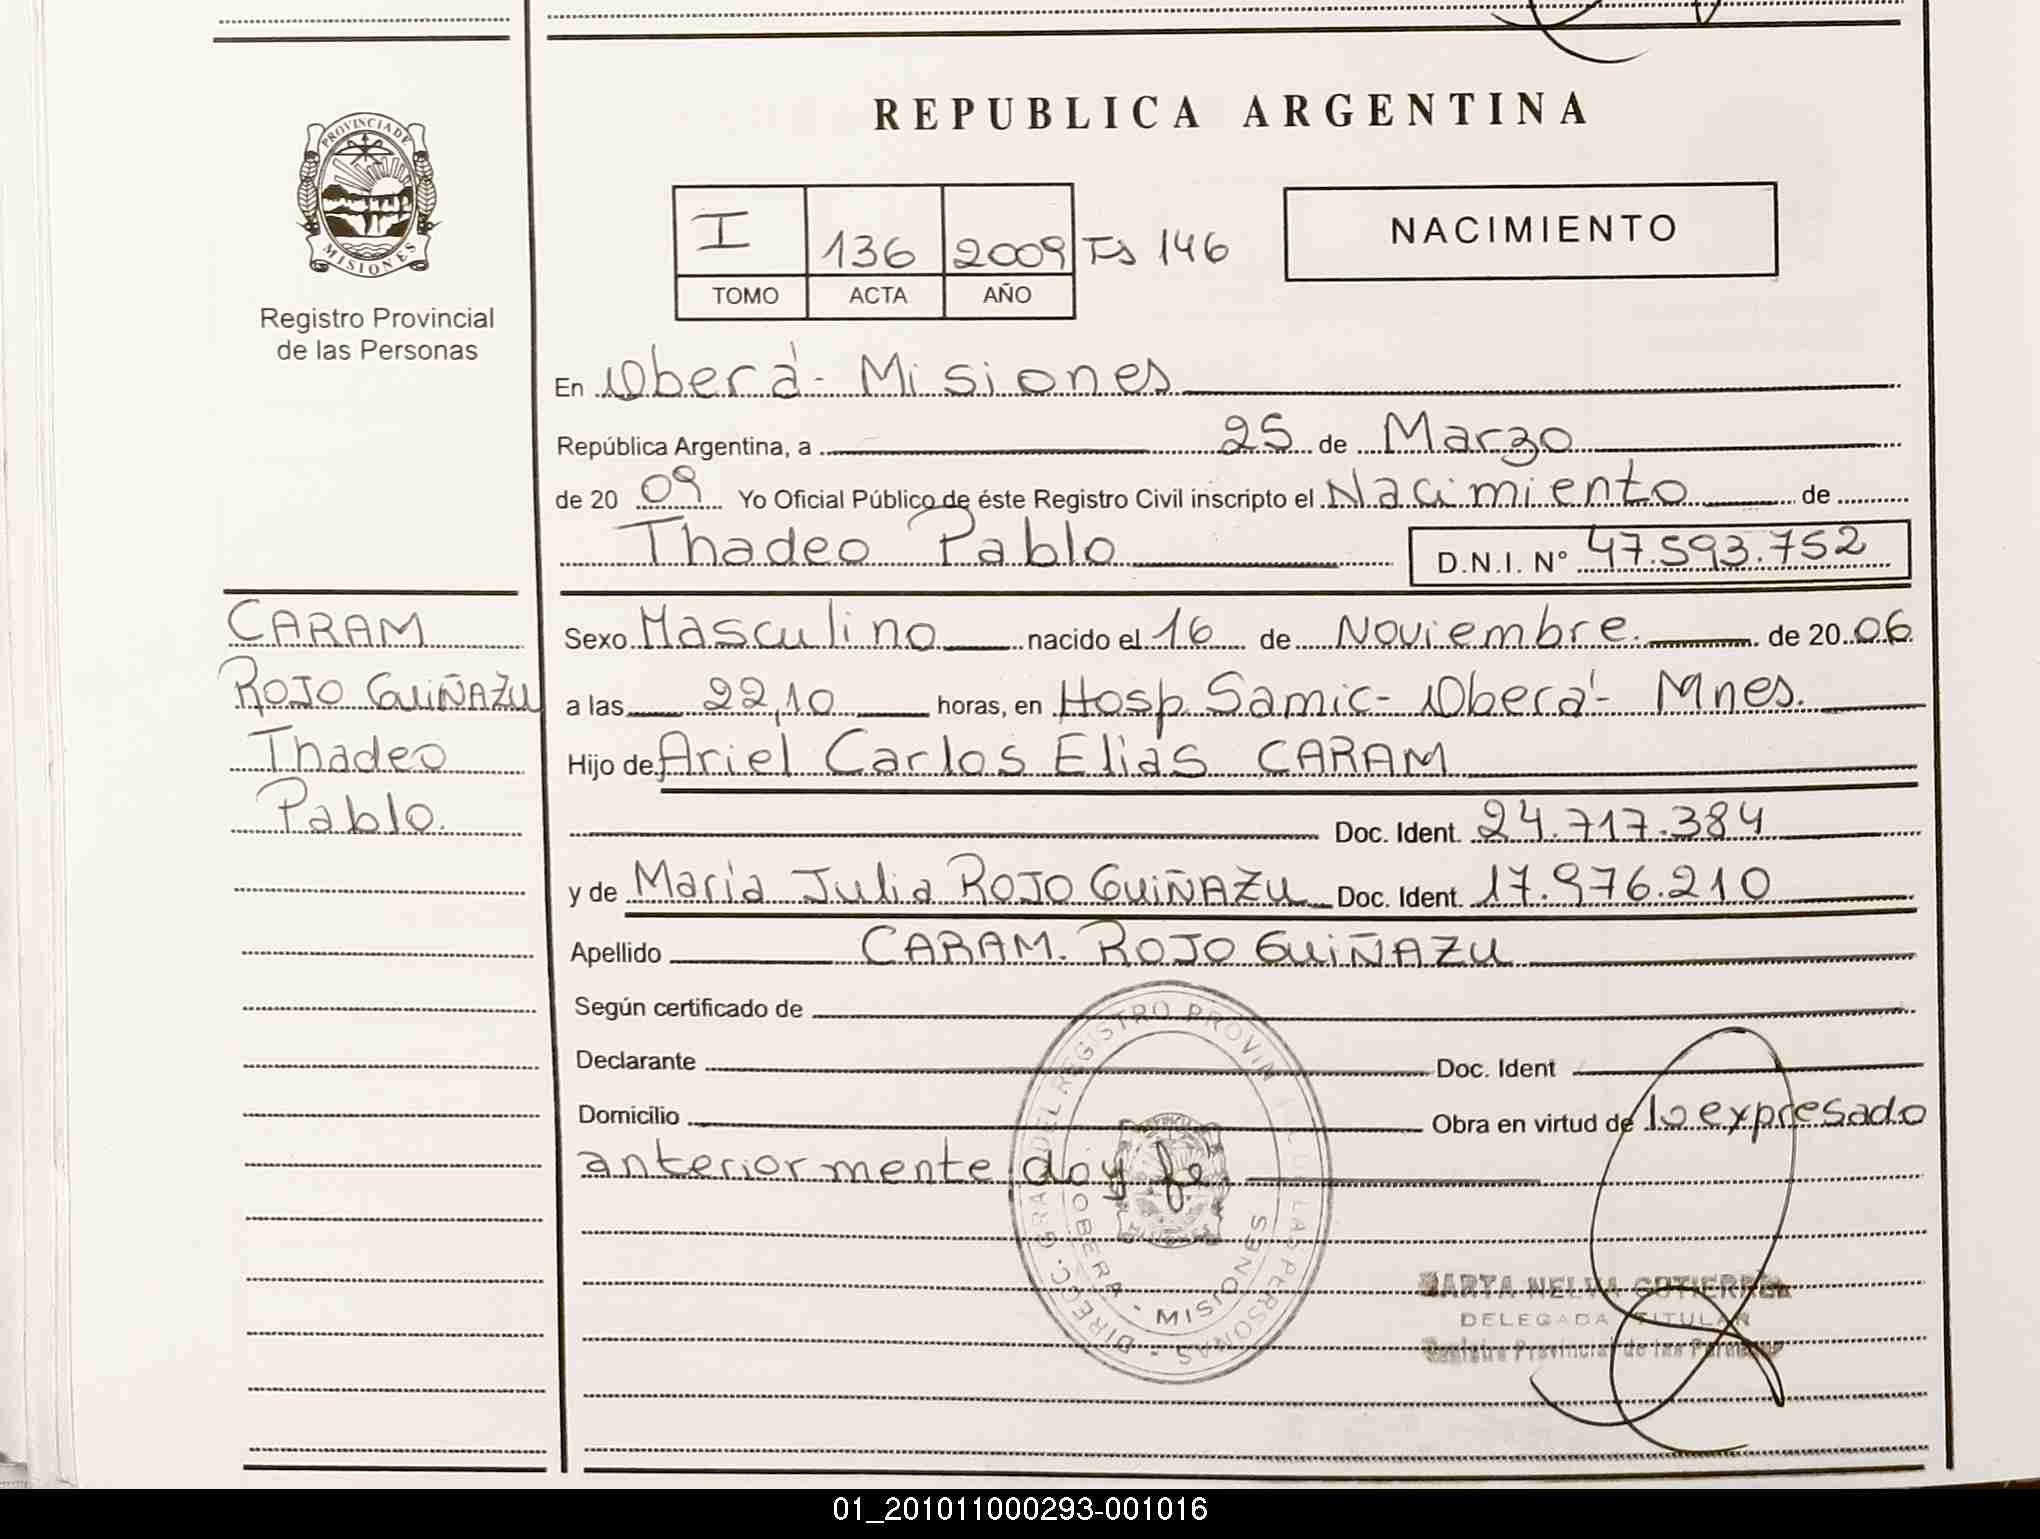 REPUBLICA ARGENTINA
PROVINCIA DE
MISIONES
Registro Provincial
de las Personas
I 136 2009 Fs 146
TOMO ACTA AÑO
NACIMIENTO
En Oberá - Misiones
República Argentina, a 25 de Marzo
de 20 09 Yo Oficial Público de éste Registro Civil inscripto el Nacimiento de
Thadeo Pablo D.N.I. Nº 47.593.752
CARAM
ROJO GUIÑAZU
Thadeo
Pablo.
Sexo Masculino nacido el 16 de Noviembre. de 20 06
a las 22,10 horas, en Hosp Samic - Oberá - Mnes.
Hijo de Ariel Carlos Elias CARAM
Doc. Ident. 24.717.384
y de María Julia ROJO GUIÑAZU Doc. Ident. 17.976.210
Apellido CARAM. ROJO GUIÑAZU
Según certificado de
Declarante Doc. Ident
Domicilio Obra en virtud de lo expresado
anteriormente doy fe.
DIRECC. GRAL DEL REGISTRO PROVINCIAL DE LAS PERSONAS
OBERA - MISIONES
MARTA NELVA GUTIERREZ
DELEGADA TITULAR
Registro Provincial de las Personas
01_201011000293-001016